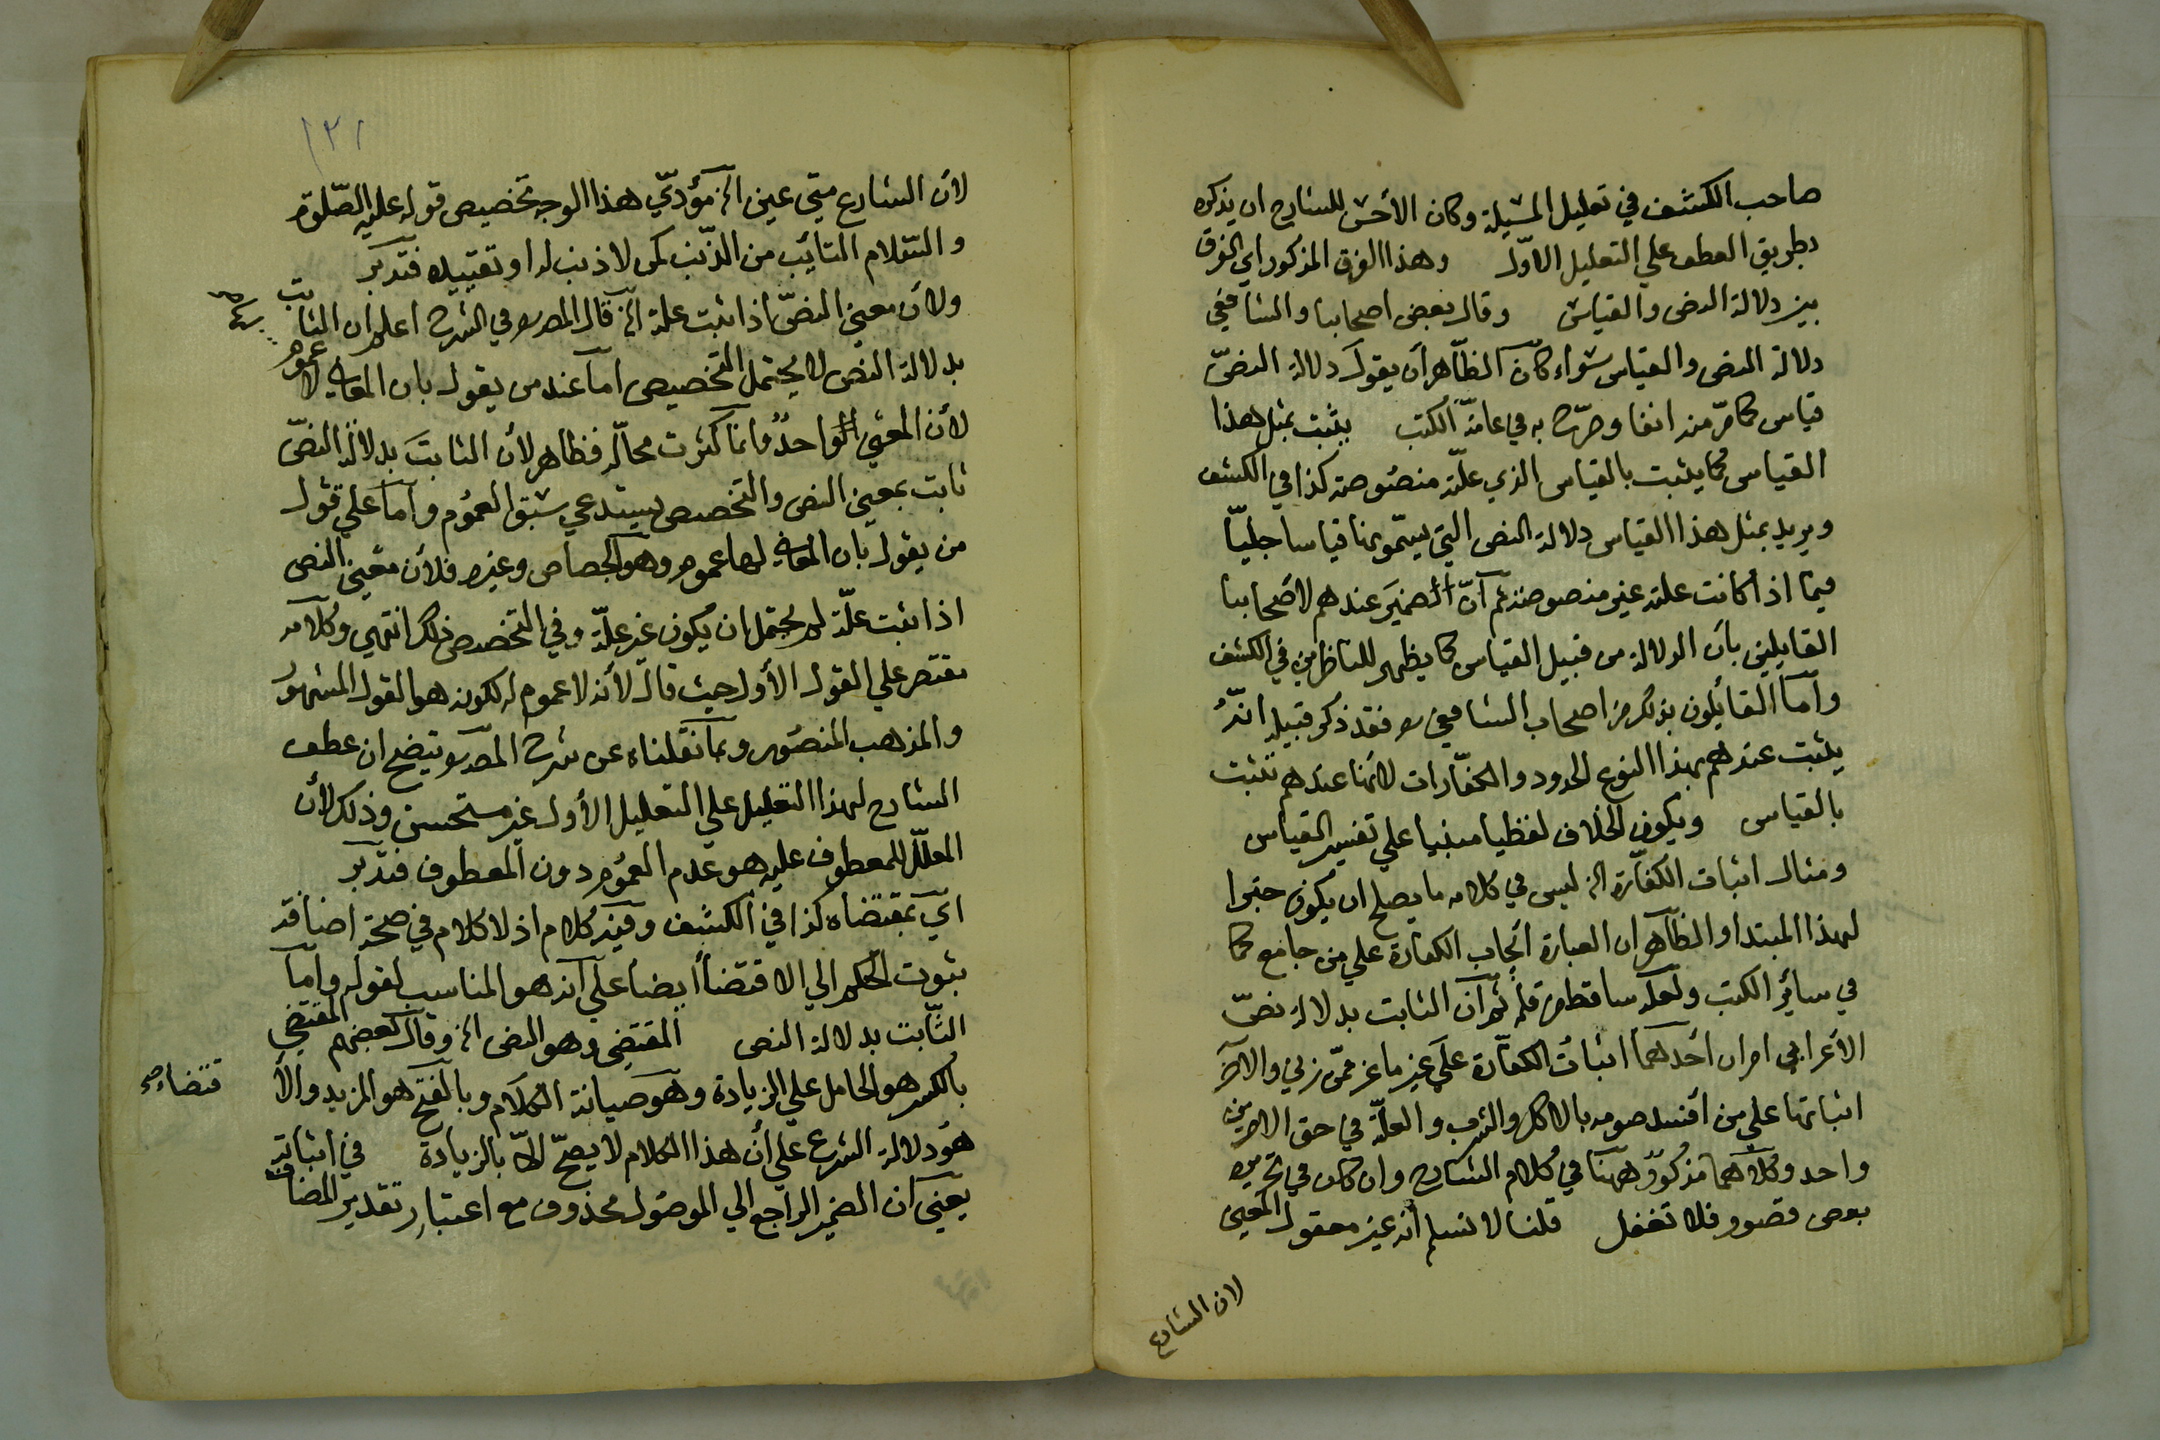 صاحب الكشف في تعليل المسئلة وكان الأحسن للشارح ان يذكره
بطريق العطف علي التعليل الاوّل وهذا الفرق المذكور اي الفرق
بين دلالة النص والقياس وقال بعض اصحابنا والشافعي
دلالة النص والقياس سواء كان الظاهر أن يقول دلالة النصّ
قياس كما مرّ منه انفا وصرّح به في عامّة الكتب يثبت بمثل هذا
القياس كما يثبت بالقياس الذي علّته منصوصة كذا في الكشف
ويريد بمثل هذا القياس دلالة النص التي يسمّونها قياسا جليّا
فيما اذا كانت علته غير منصوصة ثم انّ الضمير عندهم لاصحابنا
القايلين بأن الدلالة من قبيل القياس كما يظهر للناظرين في الكشف
وأما القائلون بذلك من اصحاب الشافعي فقد ذكر قبيله انّه
يثبت عندهم بهذا النوع الحدود والكفّارات لانها عندهم تثبت
بالقياس ويكون الخلاف لفظيا مبنيا علي تفسير القياس
ومثال اثبات الكفّارة الخ ليس في كلامه ما يصلح ان يكون خبرا
لهذا المبتدا والظاهر ان العبارة ايجاب الكفارة علي من جامع كما
في سائر الكتب ولعله ساقط من قلم ثم ان الثابت بدلالة نصّ
الأعرابي امران أحدهما اثبات الكفّارة علي غير ماعز ممّن زني والآخر
اثباتها علي من أفسد صومه بالاكل والشرب والعلّة في حق الامرين
واحد وكلاهما مذكور ههنا في كلام الشارح وان كان في تحريره
بعض قصور فلا تغفل قلنا لا نسلم أنه غير معقول المعني
لان الشارع
١٢١
لأن الشارع متي عين الخ مؤدّي هذا الوجه تخصيص قوله عليه الصّلوة
والسّلام التائب من الذّنب كمن لا ذنب له او تقييده فتدبّر
ولأن معني النصّ اذا ثبت علة الخ قال المصره في الشرح اعلم ان الثابت
بدلالة النص لا يحتمل التخصيص اما عند من يقول بان المعاني لا عموم
لأن المعني الواحد وانما كثرت محالّه فظاهر لأن الثابت بدلالة النصّ
ثابت بمعني النص والتخصيص يستدعي سبق العموم وأما علي قول
من يقول بان المعاني لها عموم وهو الجصاص وغيره فلأن معني النص
اذا ثبت علّة لم يحتمل ان يكون غير علّة وفي التخصيص ذلك انتهي وكلامه
مقتصر علي القول الأول حيث قال لأنه لا عموم له لكونه هو القول المشهور
والمذهب المنصور وبما نقلناه عن شرح المصره يتضح ان عطف
الشارح لهذا التعليل علي التعليل الأول غير مستحسن وذلك لأن
المعلّل للمعطوف عليه هو عدم العموم دون المعطوف فتدبر
اي بمقتضاه كذا في الكشف وقيد كلام اذ لا كلام في صحة اضافة
ثبوت الحكم الي الاقتضاء أيضا علي انه هو المناسب لقوله وأما
الثابت بدلالة النص المقتضي وهو النص الخ وقال بعضهم المقتضي
بالكسر هو الحامل علي الزيادة وهو صيانة الكلام وبالفتح هو المزيد والأ
قتضاء صح
هو دلالة الشرع علي أن هذا الكلام لا يصحّ الّا بالزيادة في اثباته
يعني ان الضمير الراجع الي الموصول محذوف مع اعتبار تقدير المضاف